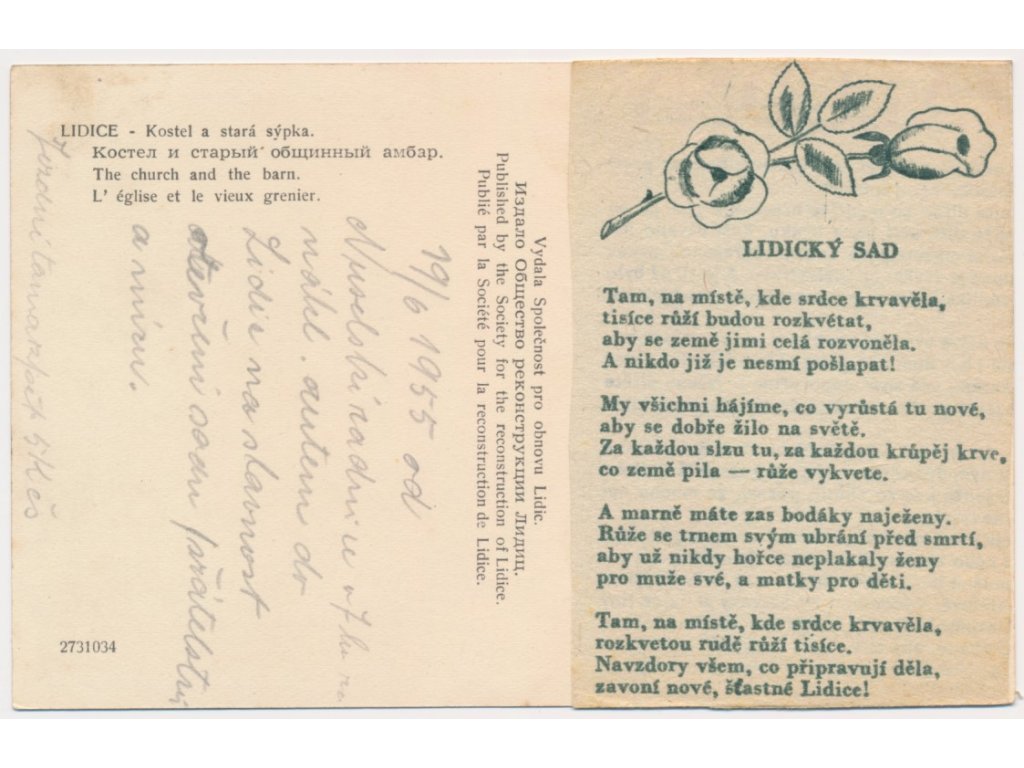 LIDICE - Kostel a stará sýpka.
Костел и старый общинный амбар.
The church and the barn.
L' église et le vieux grenier.
Vydala Společnost pro obnovu Lidic.
Издало Общество реконструкции Лидиц.
Published by the Society for the reconstruction of Lidice.
Publié par la Société pour la reconstruction de Lidice.
19/6 1955 od
Nuselské radnice v 7 hod
nákl. autem do
Lidic na slavnost
otevření sadu přátelství
a míru.
Jízdní tam a zpět 5 Kčs
2731034
LIDICKÝ SAD
Tam, na místě, kde srdce krvavěla,
tisíce růží budou rozkvétat,
aby se země jimi celá rozvoněla.
A nikdo již je nesmí pošlapat!
My všichni hájíme, co vyrůstá tu nové,
aby se dobře žilo na světě.
Za každou slzu tu, za každou krůpěj krve,
co země pila — růže vykvete.
A marně máte zas bodáky naježeny.
Růže se trnem svým ubrání před smrtí,
aby už nikdy hořce neplakaly ženy
pro muže své, a matky pro děti.
Tam, na místě, kde srdce krvavěla,
rozkvetou rudě růží tisíce.
Navzdory všem, co připravují děla,
zavoní nové, šťastné Lidice!